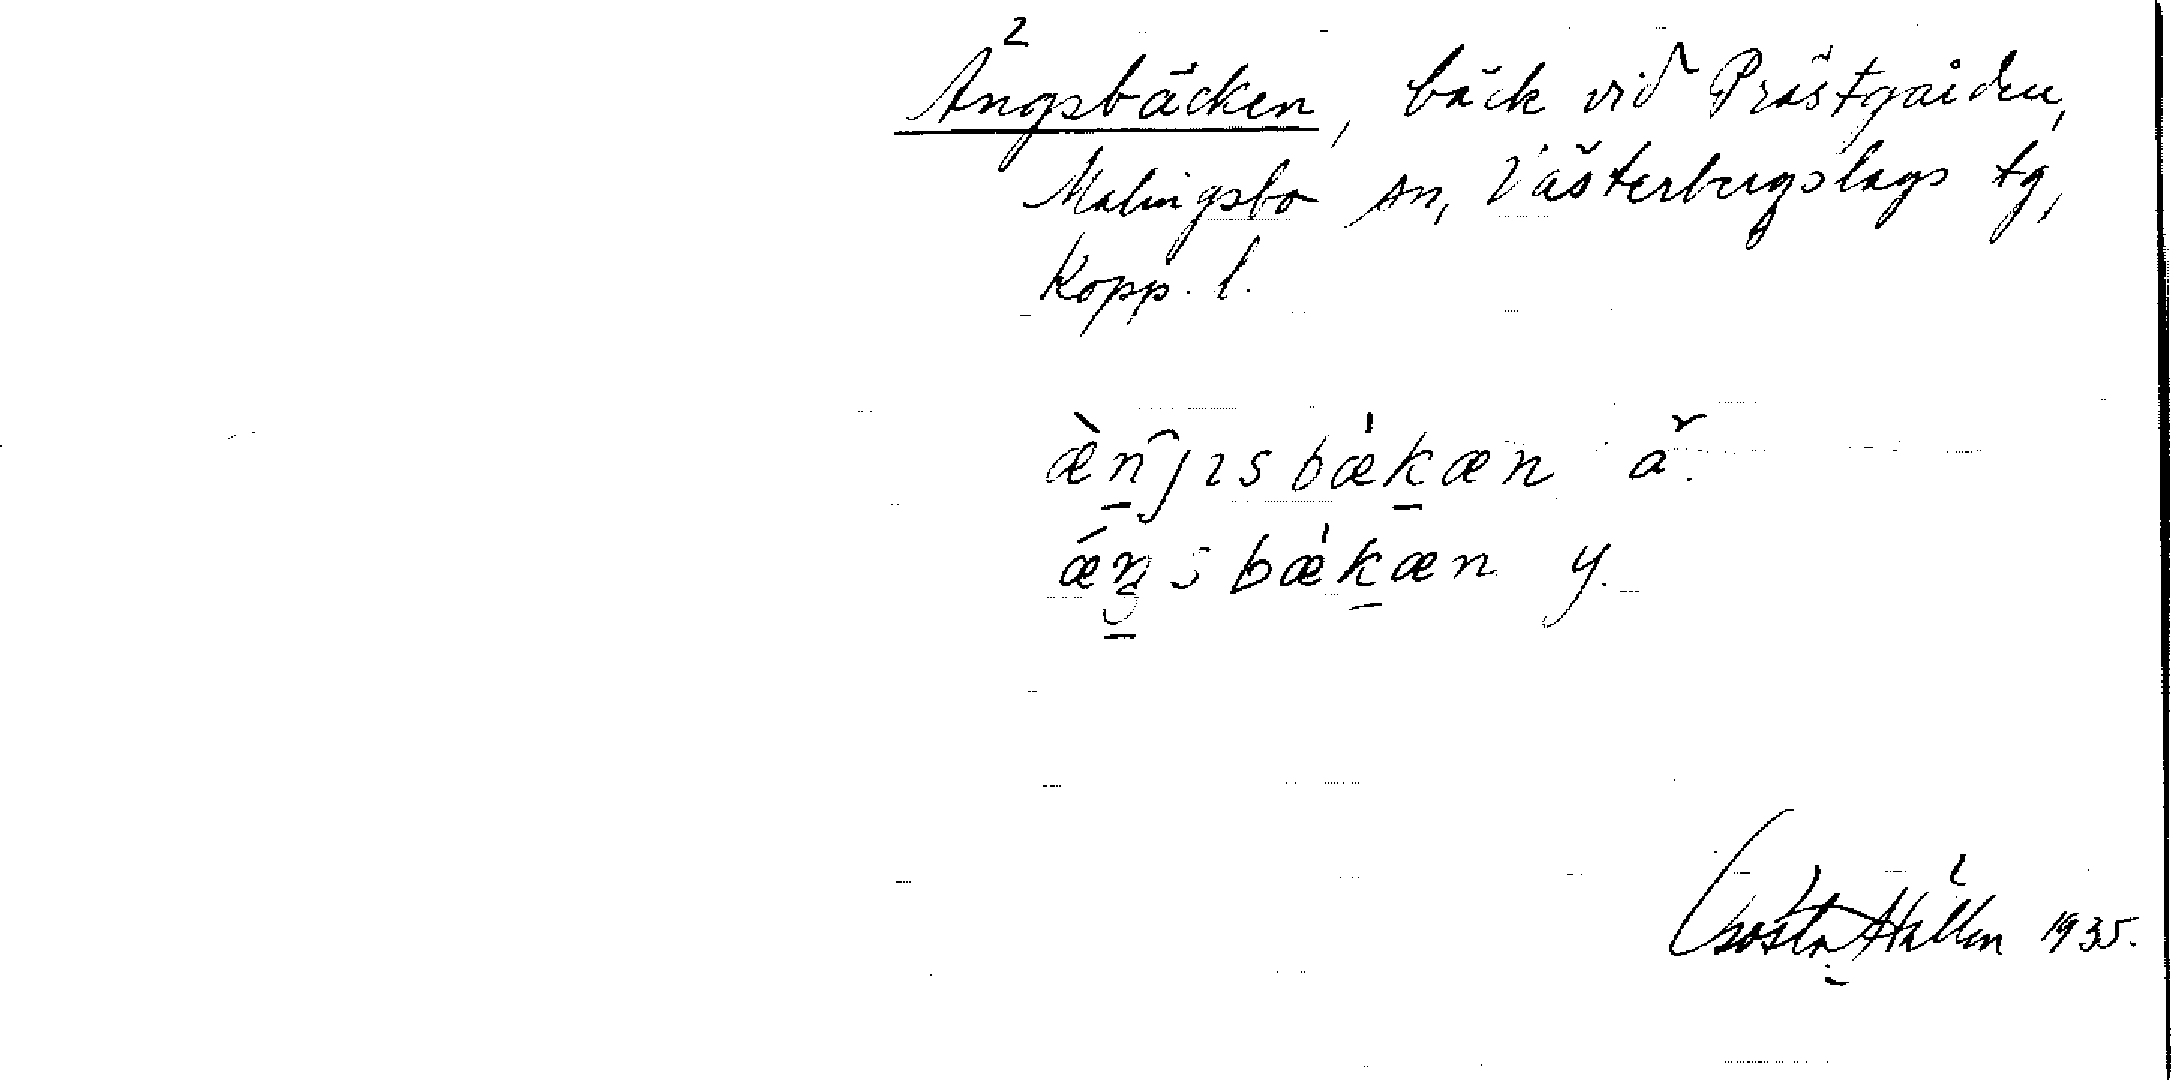 2
Ängsbäcken, bäck vid Prästgården,
Malingsbo sn, Västerbergslags tg,
Kopp. l.
æ̀n̠ȷısbǽk̠æn ä.
ǽŋ̠sbǽk̠æn y.
Gösta Hallén 1935.